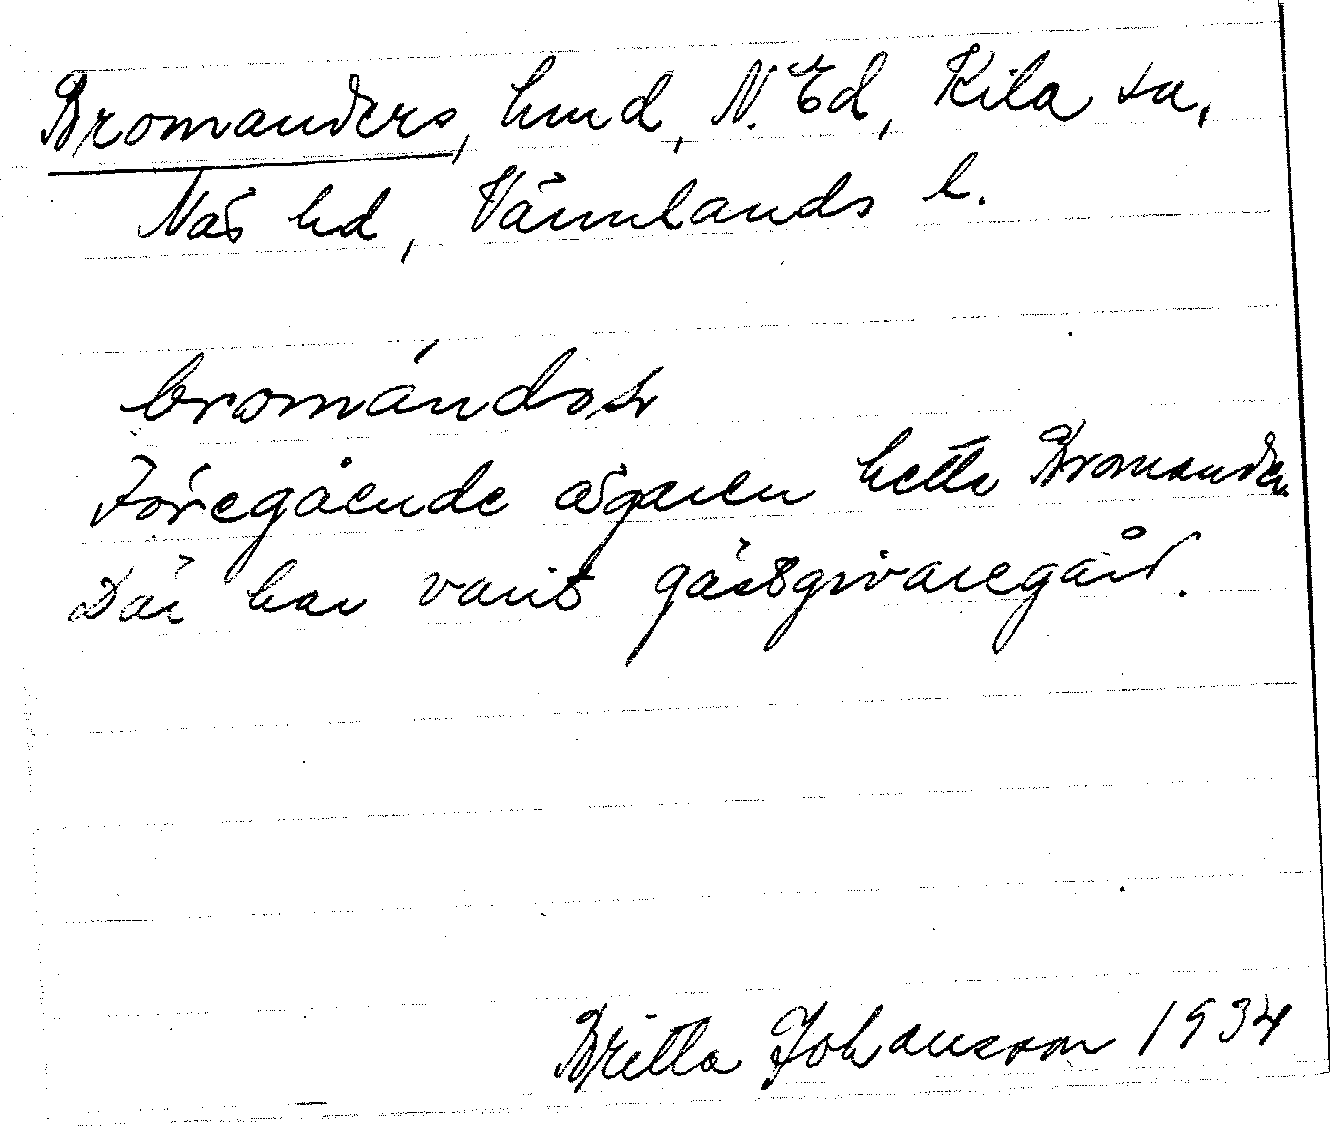 Bromanders, hmd, N. Ed, Kila sn,
Näs hd, Värmlands l.
Föregående ägaren hette Bromander.
Där har varit gästgivaregård.
Britta Johansson 1934